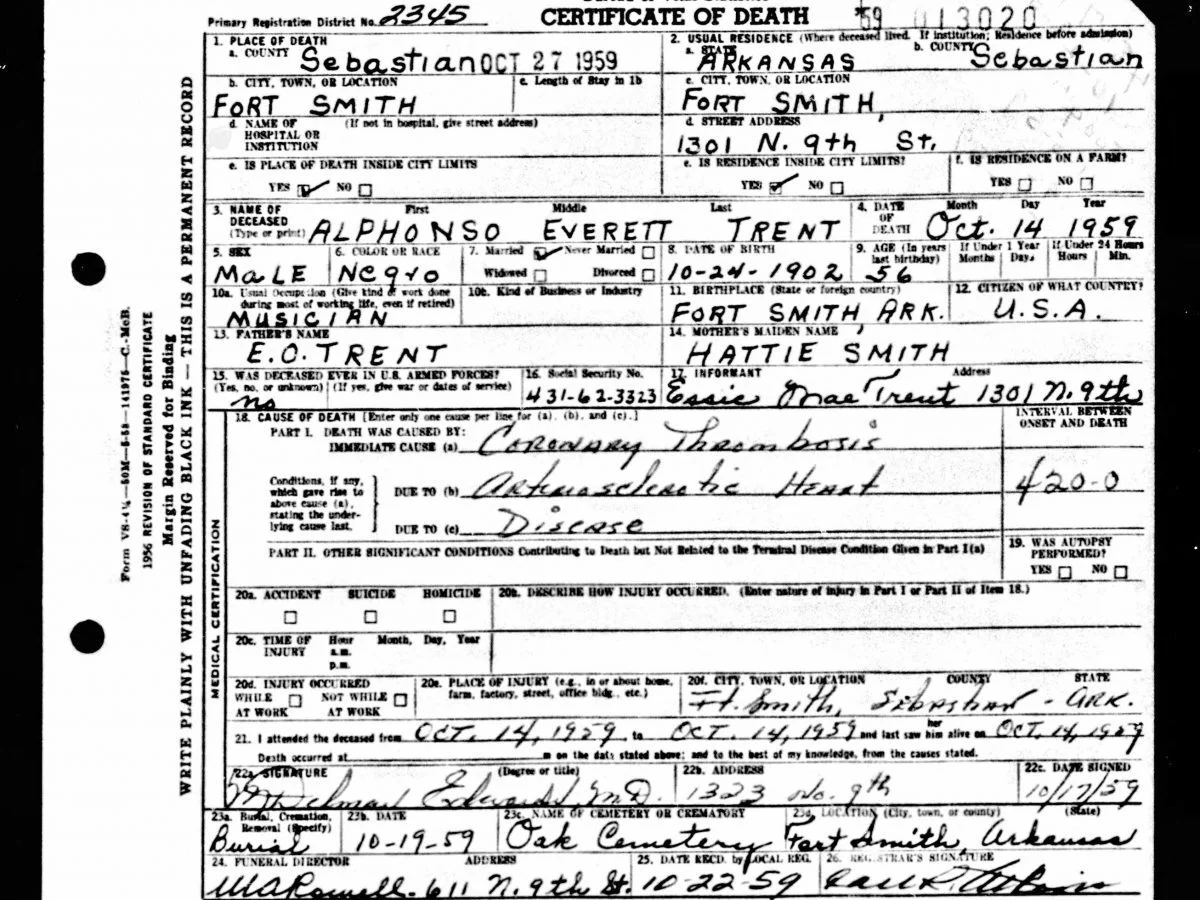 Primary Registration District No. 2345
CERTIFICATE OF DEATH
59 013020
1. PLACE OF DEATH
a. COUNTY Sebastian OCT 27 1959
2. USUAL RESIDENCE (Where deceased lived. If institution; Residence before admission)
a. STATE ARKANSAS b. COUNTY Sebastian
b. CITY, TOWN, OR LOCATION
FORT SMITH
c. Length of Stay in 1b
c. CITY, TOWN, OR LOCATION
FORT SMITH,
d. NAME OF HOSPITAL OR INSTITUTION (If not in hospital, give street address)
d. STREET ADDRESS
1301 N. 9th St.
e. IS PLACE OF DEATH INSIDE CITY LIMITS
YES NO
e. IS RESIDENCE INSIDE CITY LIMITS?
YES NO
f. IS RESIDENCE ON A FARM?
YES NO
3. NAME OF DECEASED (Type or print)
First Middle Last
ALPHONSO EVERETT TRENT
4. DATE OF DEATH
Month Day Year
Oct. 14 1959
5. SEX
MaLE
6. COLOR OR RACE
Negro
7. Married Never Married
Widowed Divorced
8. DATE OF BIRTH
10-24-1902
9. AGE (In years last birthday)
56
If Under 1 Year
Months Days
If Under 24 Hours
Hours Min.
10a. Usual Occupation (Give kind of work done during most of working life, even if retired)
MUSICIAN
10b. Kind of Business or Industry
11. BIRTHPLACE (State or foreign country)
FORT SMITH ARK.
12. CITIZEN OF WHAT COUNTRY?
U.S.A.
13. FATHER'S NAME
E.O. TRENT
14. MOTHER'S MAIDEN NAME
HATTIE SMITH
15. WAS DECEASED EVER IN U.S. ARMED FORCES?
(Yes, no, or unknown) (If yes, give war or dates of service)
no
16. Social Security No.
431-62-3323
17. INFORMANT Address
Essie Mae Trent 1301 N. 9th
18. CAUSE OF DEATH [Enter only one cause per line for (a), (b), and (c).]
INTERVAL BETWEEN ONSET AND DEATH
PART I. DEATH WAS CAUSED BY:
IMMEDIATE CAUSE (a) Coronary Thrombosis
Conditions, if any, which gave rise to above cause (a), stating the underlying cause last.
DUE TO (b) Arteriosclerotic Heart
420-0
DUE TO (c) Disease
PART II. OTHER SIGNIFICANT CONDITIONS Contributing to Death but Not Related to the Terminal Disease Condition Given in Part I(a)
19. WAS AUTOPSY PERFORMED?
YES NO
20a. ACCIDENT SUICIDE HOMICIDE
20b. DESCRIBE HOW INJURY OCCURRED. (Enter nature of injury in Part I or Part II of Item 18.)
20c. TIME OF INJURY Hour a.m. p.m. Month, Day, Year
20d. INJURY OCCURRED
WHILE AT WORK NOT WHILE AT WORK
20e. PLACE OF INJURY (e.g., in or about home, farm, factory, street, office bldg., etc.)
20f. CITY, TOWN, OR LOCATION COUNTY STATE
Ft. Smith, Sebastian - ARK.
21. I attended the deceased from OCT. 14, 1959 to OCT. 14, 1959 and last saw her him alive on OCT. 14, 1959
Death occurred at m on the date stated above; and to the best of my knowledge, from the causes stated.
22a. SIGNATURE (Degree or title)
Edwards M.D.
22b. ADDRESS
1323 No. 9th
22c. DATE SIGNED
10/17/59
23a. Burial, Cremation, Removal (Specify)
Burial
23b. DATE
10-19-59
23c. NAME OF CEMETERY OR CREMATORY
Oak Cemetery
23d. LOCATION (City, town, or county) (State)
Fort Smith, Arkansas
24. FUNERAL DIRECTOR ADDRESS
WA Rowell - 611 N. 9th St.
25. DATE RECD. by LOCAL REG.
10-22-59
26. REGISTRAR'S SIGNATURE
MEDICAL CERTIFICATION
WRITE PLAINLY WITH UNFADING BLACK INK — THIS IS A PERMANENT RECORD
Margin Reserved for Binding
1956 REVISION OF STANDARD CERTIFICATE